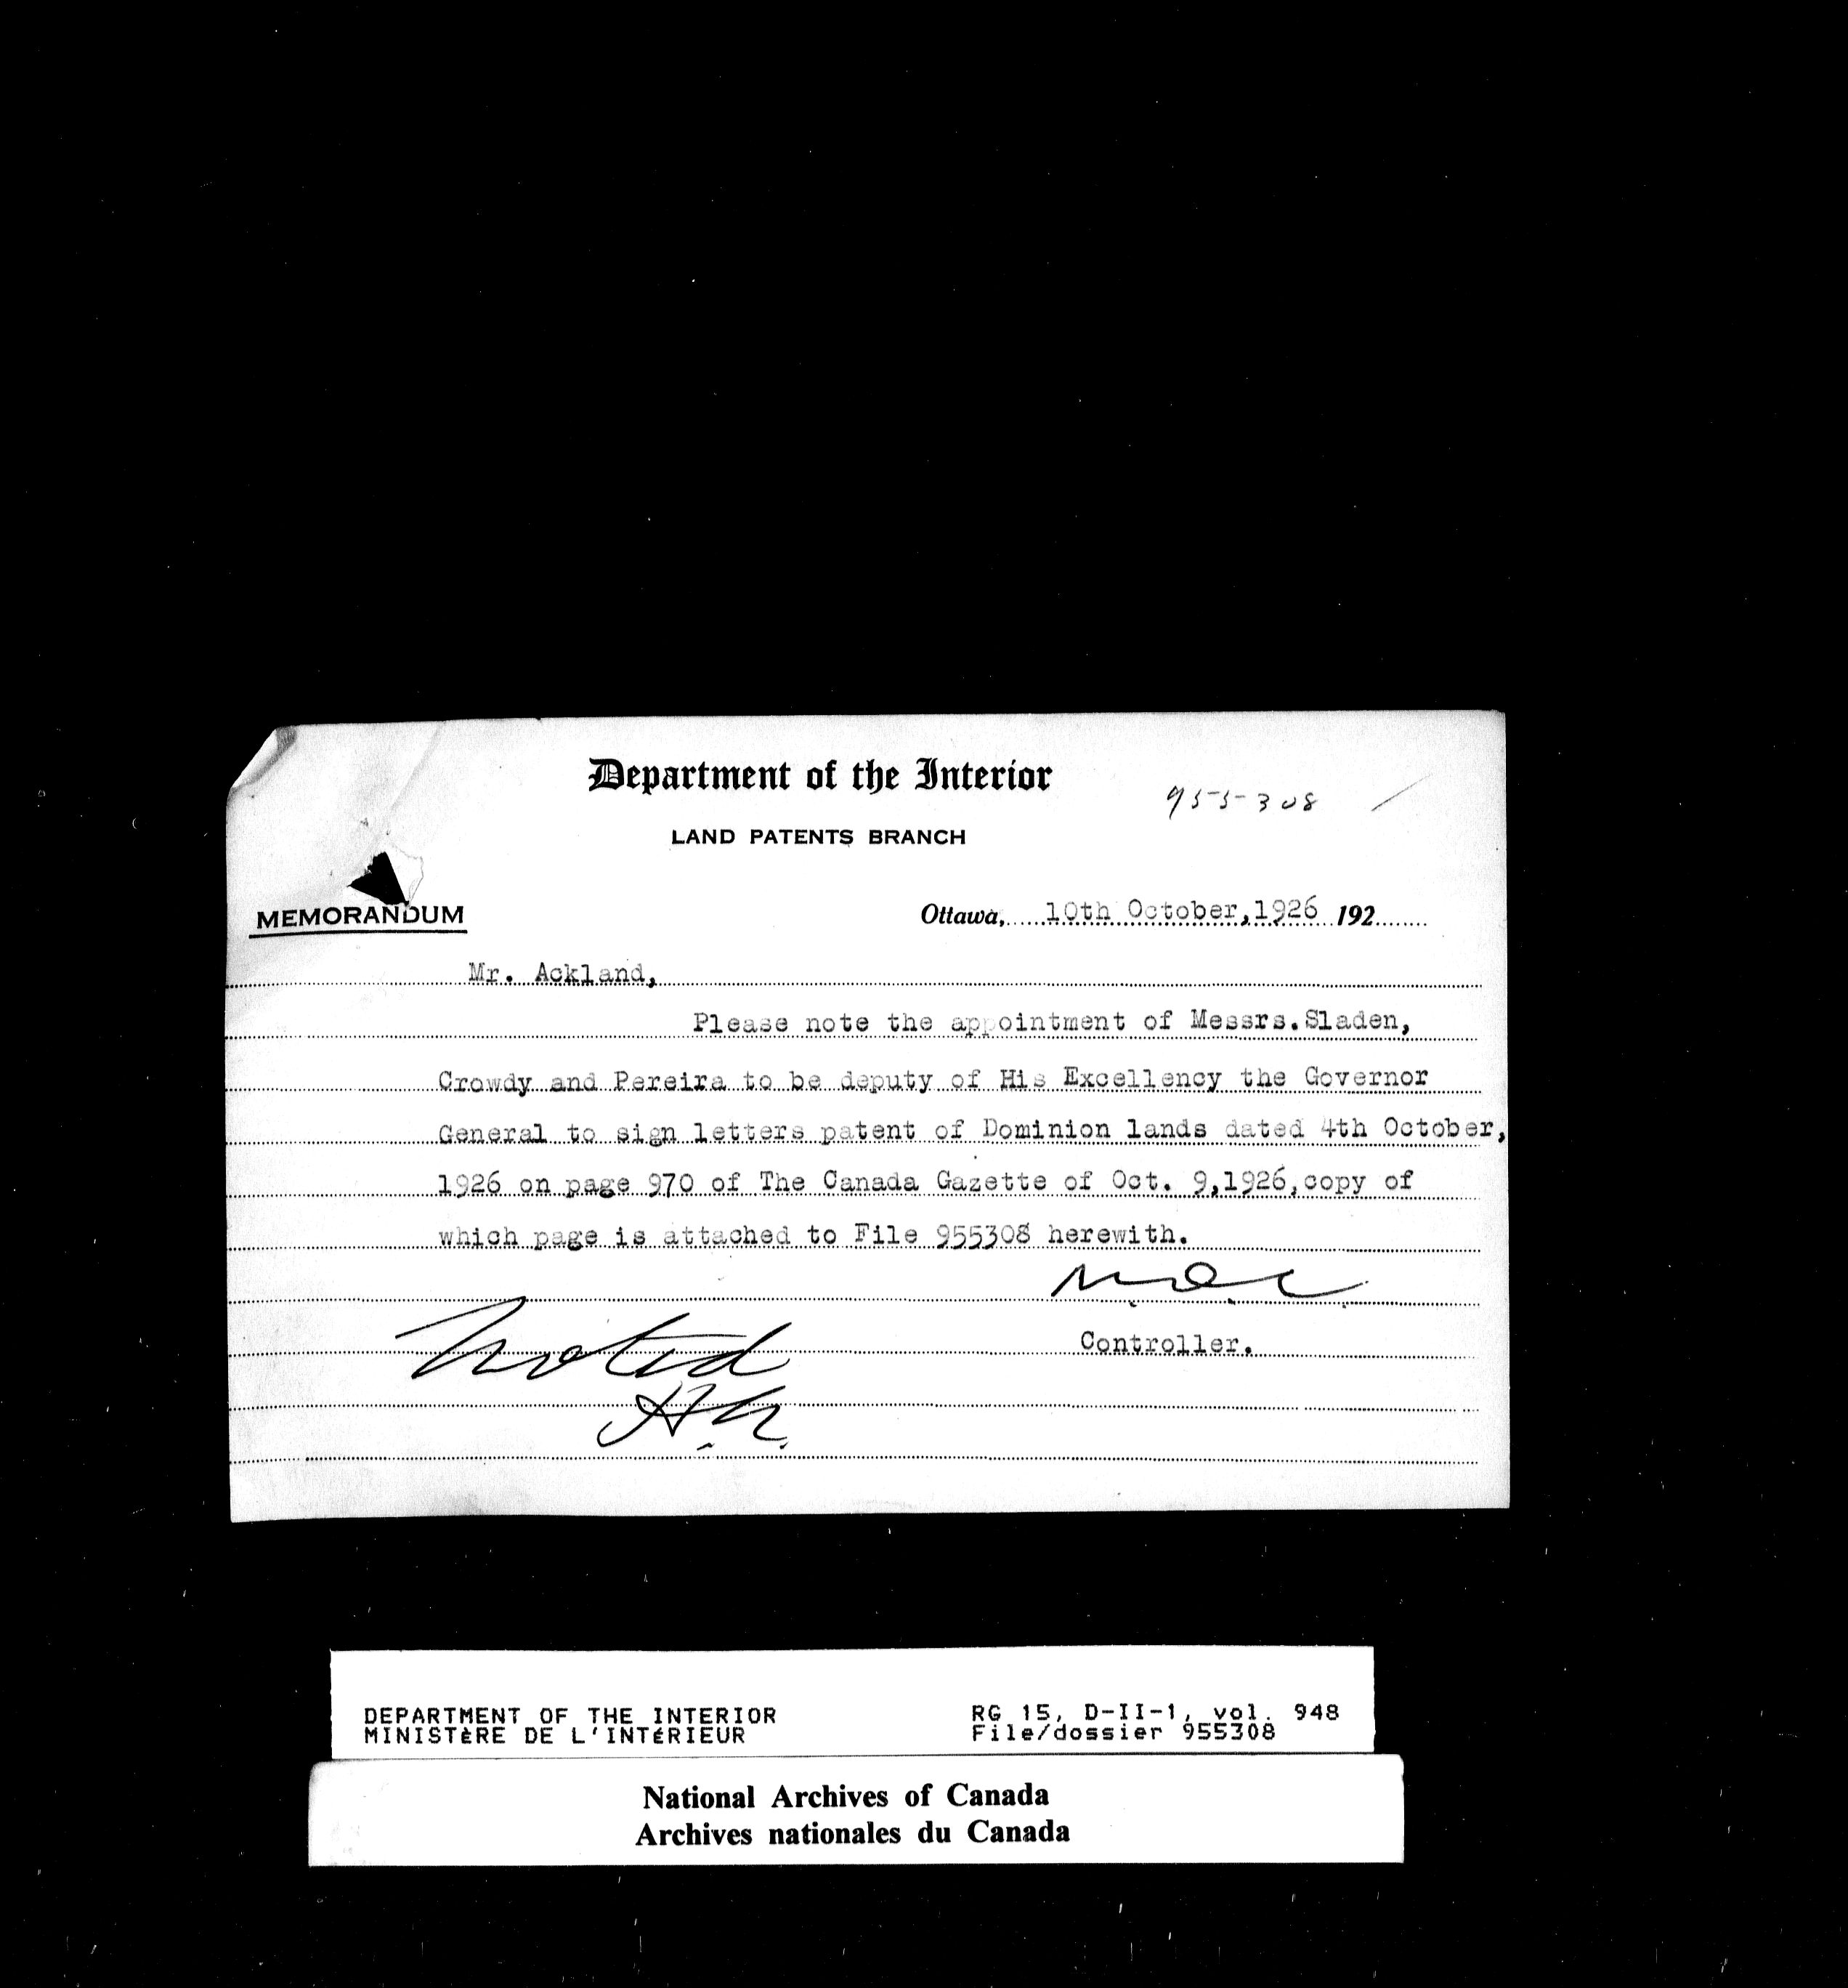 Department of the Interior
955308
LAND PATENTS BRANCH
MEMORANDUM
Ottawa, 10th October, 1926 192
Mr. Ackland,
Please note the appointment of Messrs. Sladen,
Crowdy and Pereira to be deputy of His Excellency the Governor
General to sign letters patent of Dominion lands dated 4th October,
1926 on page 970 of The Canada Gazette of Oct. 9,1926,copy of
which page is attached to File 955308 herewith.
Controller.
Noted
DEPARTMENT OF THE INTERIOR
MINISTÈRE DE L'INTÉRIEUR
RG 15, D-II-1, vol. 948
File/dossier 955308
National Archives of Canada
Archives nationales du Canada